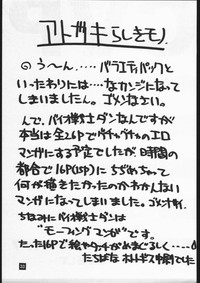 アトガキらしきモノ.
のう〜ん,....バラエティパックと
いったわりには…なカンジになって
しまいましたん。ゴメンなさい。
んで、バイオ戦士ダンなんですが
本当は全26Pでグチャグチャのエロ
マンガにする予定でしたが、日時間の
都合で16P(15P)にちぢめちゃって
何が描きたかったのかわかんない
マンガになってしまいました。ゴメンナサイ.
ちなみにバイオ戦士ダンは
"モーフィングマンガ"です。
たった16Pで絵やタッチがめまぐるしく....
たちばな ホトトギス